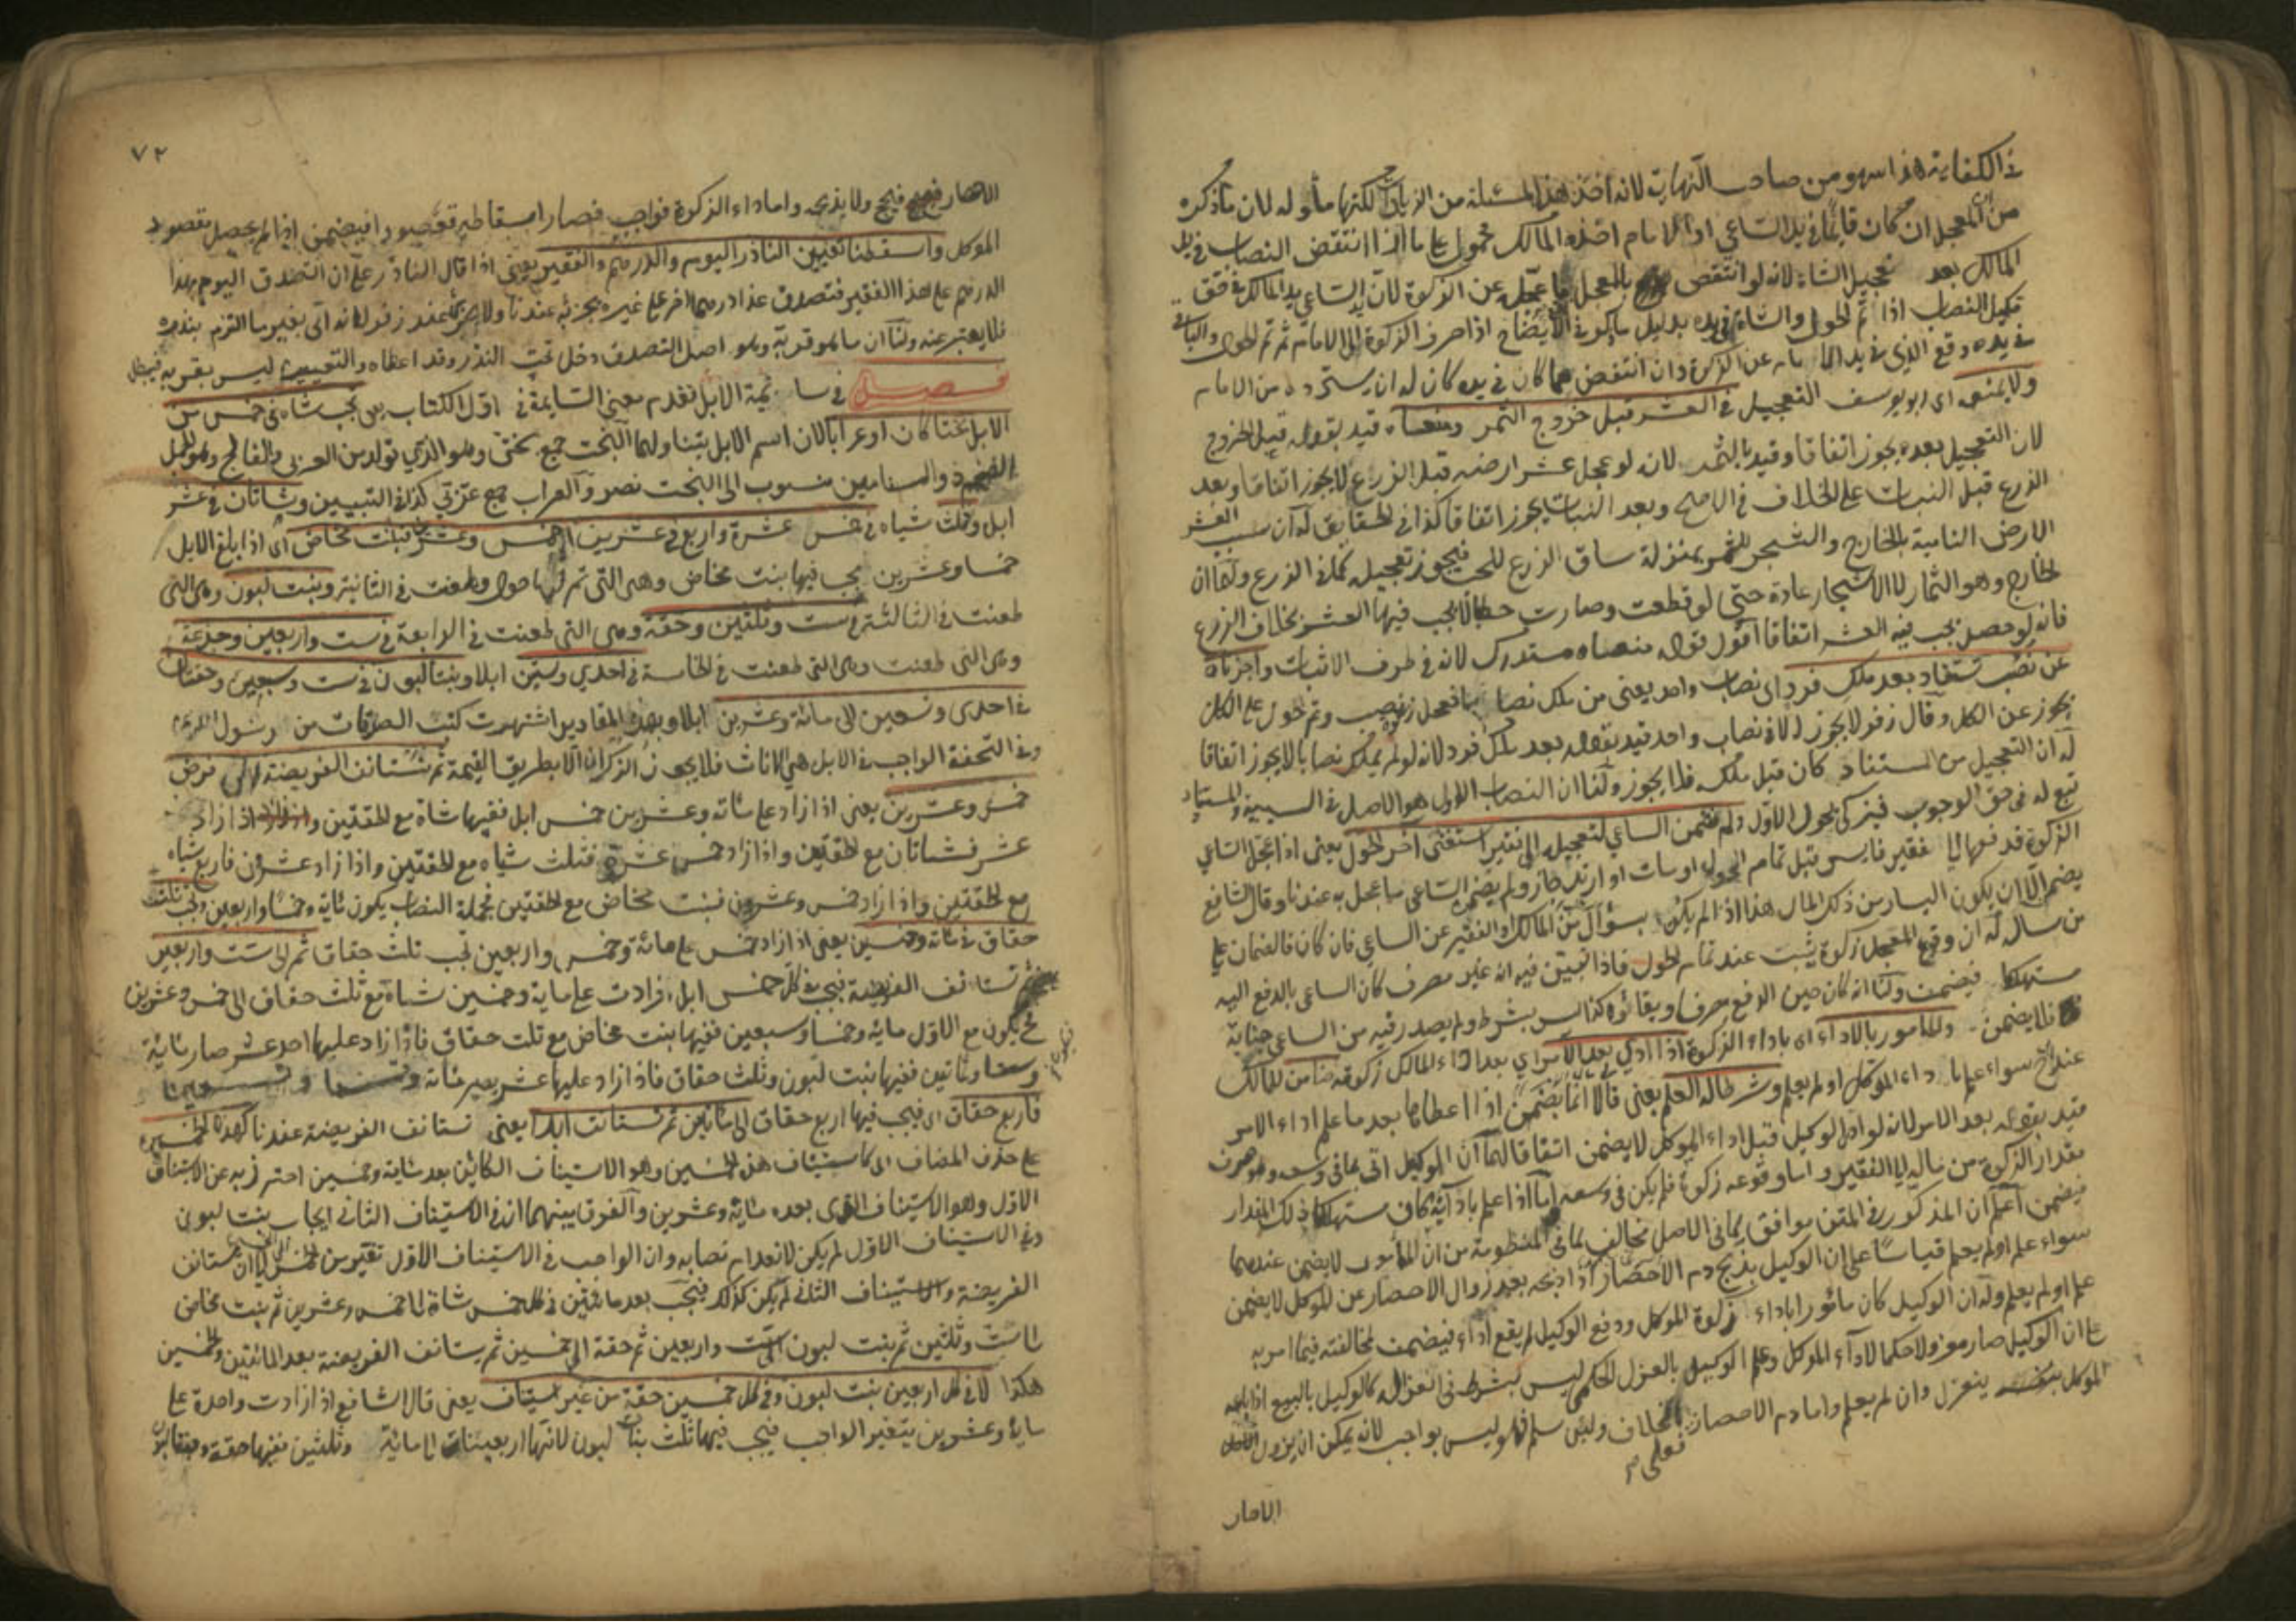 في الكفاية هذا سهو من صاحب النهاية لانه اخذ هذا المسئلة من الزيادات لكنها مأوله لان ما ذكره
من ان المعجل ان كان قائما في يد الساعي او الامام اخذه المالك محمول على ما اذا انتقض النصاب في يد
المالك بعد تعجيل الشاة لانه لو انتقص بالمعجل ما عجله عن الزكوة لان يد الساعي يد المالك في حق
تكميل النصاب اذا تم الحول والشاة في يده بدليل ما ذكر في الايضاح اذا صرف الزكوة الى الامام ثم تم الحول والباقي
في يده وقع الذي في يد الامام عن الزكوة وان انتقض مما كان في يده كان له ان يسترده من الامام
ولا يمنع اى ابو يوسف التعجيل في العشر قبل خروج الثمر ومنعاه قيد بقوله قبل الخروج
لان التعجيل بعده يجوز اتفاقا وقيد بالثمر لانه لو عجل عشر ارضه قبل الزرع لا يجوز اتفاقا وبعد
الزرع قبل النبات على الخلاف في الاصح وبعد النبات يجوز اتفاقا كذا في الحقايق له ان سبب العشر
الارض النامية بالخارج والشجر للثمر بمنزلة ساق الزرع للحب فيجوز تعجيله كما في الزرع ولهما ان
الخارج وهو الثمار لا الاشجار عادة حتى لو قطعت وصارت حطبا لا يجب فيها العشر بخلاف الزرع
فانه لو فصل يجب فيه العشر اتفاقا اقول قوله منعاه مستدرك لانه في طرف الاثبات واجزناه
عن نصب تستفاد بعد ملك فرد اى نصاب واحد يعني من ملك نصابا فعجل زكوة نصب وتم الحول على الكل
يجوز عن الكل وقال زفر لا يجوز الا في نصاب واحد قيد بقوله بعد ملك فرد لانه لو لم يملك نصابا لا يجوز اتفاقا
له ان التعجيل من المستفاد كان قبل ملكه فلا يجوز ولنا ان النصاب الاول هو الاصل في السببية والمستفاد
تبع له في حق الوجوب فيزكى بحول الاول ولم نضمن الساعي لتعجيل الى فقير استغنى اخر الحول يعني اذا عجل الساعي
الزكوة فدفعها الى فقير فايسر قبل تمام الحول او مات او ارتد جاز ولم يضمن الساعي ما عجل به عندنا وقال الشافعي
يضمن الا ان يكون اليسار من ذلك المال هذا اذا لم يكن بسؤال من المالك او الفقير عن الساعي فان كان فالضمان على
من سال له ان وقوع المعجل زكوة يثبت عند تمام الحول فاذا تبين فيه انه غير مصرف كان الساعي بالدفع اليه
مستهلكا فيضمن ولنا انه كان حين الدفع مصرفا وبقائه كذا ليس بشرط ولم يصدر فيه من الساعي جناية
فلا يضمن والمامور بالاداء اى باداء الزكوة اذا ادى بعد الامر اي بعد اداء المالك زكوته ضامن للمالك
عنده سواء علم باداء الموكل او لم يعلم وشرطاله العلم يعني قالا انما يضمن اذا اعطاها بعد ما علم اداء الامر
قيد بقوله بعد الامر لانه لو ادى الوكيل قبل اداء الموكل لا يضمن اتفاقا لهما ان الوكيل اتى بما في وسعه وهو صرف
مقدار الزكوة من ماله الى الفقير واما وقوعه زكوة فلم يكن في وسعه اما اذا علم بادائه كان مستهلكا ذلك المقدار
فيضمن اعلم ان المذكور في المتن موافق لما في الاصل مخالف لما في المنظومة من ان المأمور لا يضمن عندهما
سواء علم او لم يعلم قياسا على ان الوكيل بذبح دم الاحصار اذا ذبحه بعد زوال الاحصار عن الموكل لا يضمن
علم او لم يعلم وله ان الوكيل كان مأمورا باداء زكوة الموكل ودفع الوكيل لم يقع اداء فيضمن لمخالفته فيما امر به
على ان الوكيل صار معزولا حكما لاداء الموكل وعلم الوكيل بالعزل الحكمي ليس بشرط في انعزاله كالوكيل بالبيع اذا باعه
الموكل بنفسه ينعزل وان لم يعلم واما دم الاحصار فعلى الخلاف ولئن سلم فهو ليس بواجب لانه يمكن ان يزول
فعلى
الاحصار
٧٢
الاحصار فيحج ولا يذبح واما اداء الزكوة فواجب فصار اسقاطه مقصودا فيضمن اذا لم يحصل مقصود
الموكل واسقطنا تعيين الناذر اليوم والدرهم والفقير يعني اذا قال الناذر على ان اتصدق اليوم بهذا
الدرهم على هذا الفقير فتصدق غدا درهما اخر على غيره يجزئه عندنا ولا يجزئه عند زفر لانه اتى بغير ما التزم بنذره
فلا يعتبر عنه ولنا ان ما هو قربة وهو اصل التصدق دخل تحت النذر وقد اعطاه والتعيين ليس بقربة فيبطل
فصل في سائمة الابل تقدم معنى السايمة في اول الكتاب يعني تجب شاة في خمس من
الابل بختا كان او عرابا لان اسم الابل يتناولهما البخت جمع بختى وهو الذي تولد من العربى والفالج وهو الجمل
الضخم ذو السنامين منسوب الى البخت نصر والعراب جمع عربي كذا في التبيين وشاتان في عشر
ابل وثلث شياه في خمس عشرة واربع في عشرين الى خمس وعشرين فبنت مخاض اى اذا بلغ الابل
خمسا وعشرين يجب فيها بنت مخاض وهى التى تم لها حول وطعنت في الثانية وبنت لبون وهى التى
طعنت في الثالثة في ست وثلثين وحقة وهى التى طعنت في الرابعة في ست واربعين وجذعة
وهى التى طعنت وهى التى طعنت في الخامسة في احدي وستين ابلا وبنتا لبون في ست وسبعين وحقتان
في احدى وتسعين الى مائة وعشرين ابلا وبهذه المقادير اشتهرت كتب الصدقات من رسول الله
وفي التحفة الواجب في الابل هي الاناث فلا يجوز الذكران الا بطريق القيمة ثم نستانف الفريضة الى فرض
خمس وعشرين يعني اذا زاد على مائة وعشرين خمس ابل ففيها شاة مع الحقتين واذا زاد
عشر فشاتان مع الحقتين واذا زاد خمس عشرة فثلث شياه مع الحقتين واذا زاد عشرون فاربع شياه
مع الحقتين واذا زاد خمس وعشرون فبنت مخاض مع الحقتين فجملة النصاب يكون مائة وخمسا واربعين وتجب ثلث
حقاق في مائة وخمسين يعني اذا زاد خمس على مائة وخمس واربعين تجب ثلث حقاق ثم الى ست واربعين
تستانف الفريضة فيجب في كل خمس ابل زادت على ماية وخمسين شاة مع ثلث حقاق الى خمس وعشرين
فيكون مع الاول مائة وخمسا وسبعين ففيها بنت مخاض مع ثلث حقاق فاذا زاد عليها احد عشر صار مائة
وستا وثمانين ففيها بنت لبون وثلث حقاق فاذا زاد عليها عشر يصير مائة وستا وتسعين
فاربع حقاق اى فيجب فيها اربع حقاق الى مائتين ثم نستانف ابدا يعني نستانف الفريضة عندنا كهذه الخمسين
على حذف المضاف اى كاستيناف هذه الخمسين وهو الاستيناف الكائن بعد مائة وخمسين احترز به عن الاستيناف
الاول وهو الاستيناف الذى بعده مائة وعشرين والفرق بينهما ان في الاستيناف الثاني ايجاب بنت لبون
وفي الاستيناف الاول لم يكن لانعدام نصابه وان الواجب في الاستيناف الاول تغير من الخمس الى ان تستانف
الفريضة والاستيناف الثاني لم يكن كذلك فيجب بعد مائتين في كل خمس شاة الى خمس وعشرين ثم بنت مخاض
الى ست وثلثين ثم بنت لبون الى ست واربعين ثم حقة الى خمسين ثم يستانف الفريضة بعد المائتين والخمسين
هكذا لا في كل اربعين بنت لبون وفي كل خمسين حقة من غير استيناف يعني قال الشافعي اذا زادت واحدة على
مائة وعشرين يتغير الواجب فيجب فيها ثلث بنات لبون لانها اربعينات الى مائة وثلثين ففيها حقة وبنتا لبون